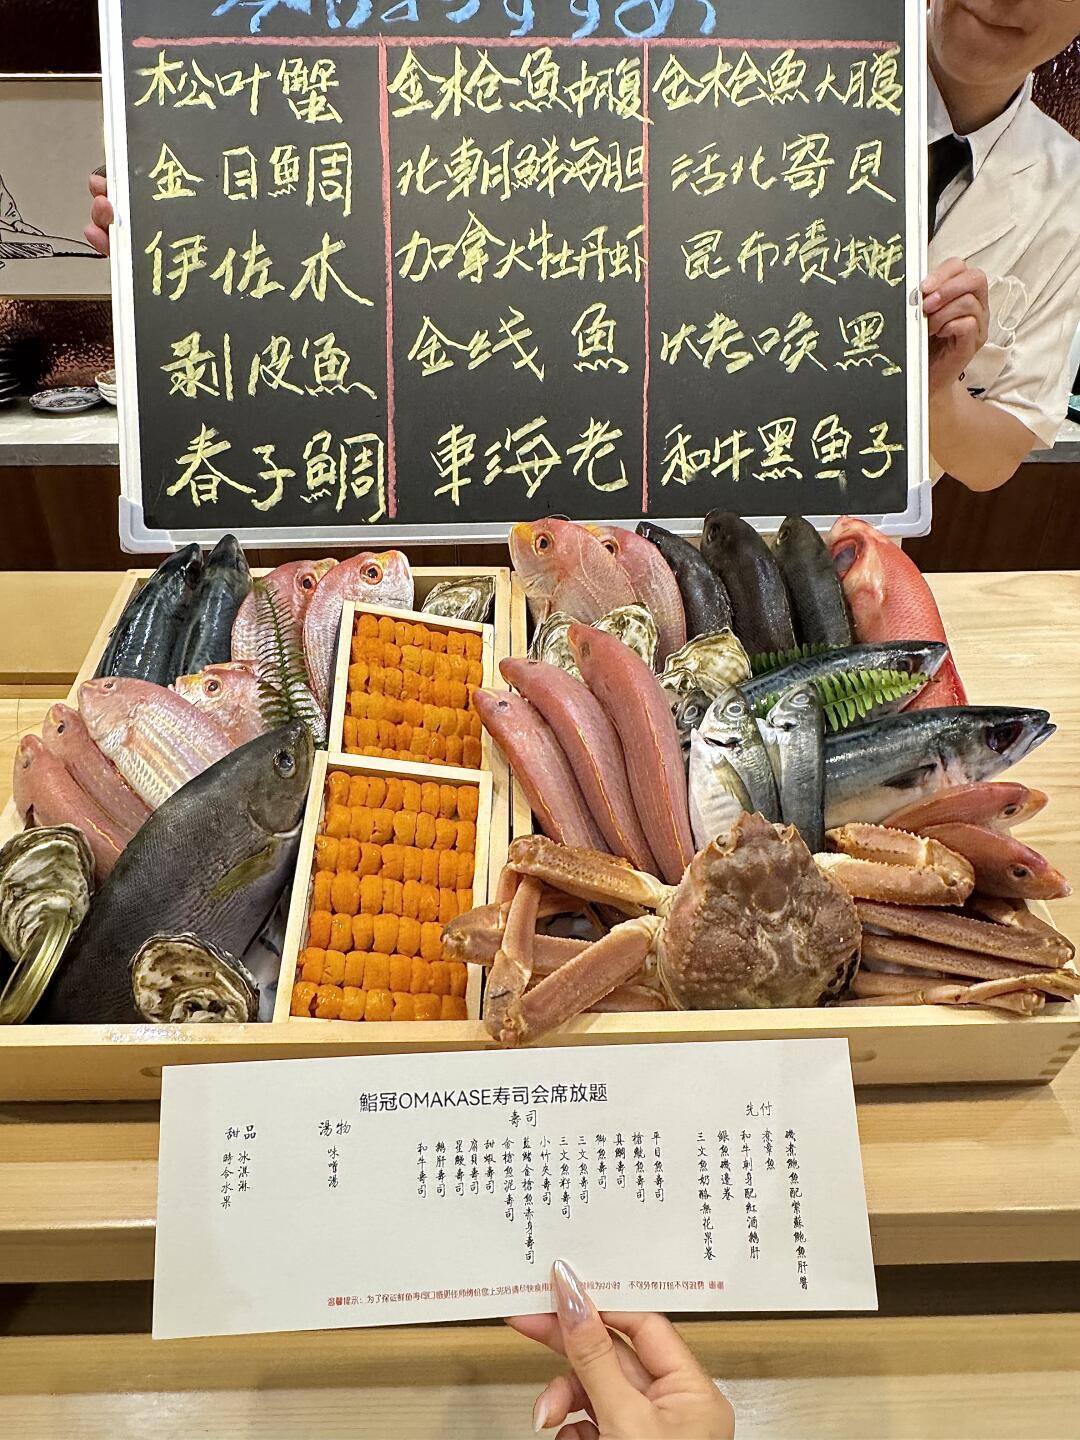 本日おすすめ
松叶蟹
金目鯛
伊佐木
剥皮魚
春子鯛
金枪魚中腹
北朝鮮海胆
加拿大牡丹虾
金线魚
車海老
金枪魚大腹
活北寄贝
昆布渍生蚝
烤喉黑
和牛黑魚子
鮨冠OMAKASE寿司会席放题
先付
磯煮鮑魚配紫蘇鮑魚肝醬
煮章魚
和牛刺身配紅酒鵝肝
銀魚磯邊卷
三文魚奶酪無花果卷
寿司
平目魚寿司
槍魷魚寿司
真鯛寿司
鰤魚寿司
三文魚寿司
三文魚籽寿司
小竹夾寿司
藍鰭金槍魚赤身寿司
金槍魚泥寿司
甜蝦寿司
扇貝寿司
星鰻寿司
鵝肝寿司
和牛寿司
湯物
味噌湯
甜品
冰淇淋
時令水果
温馨提示:为了保证鲜鱼寿司口感更佳师傅给您上完后请尽快食用
为2小时 不可外带打包不可浪费 谢谢